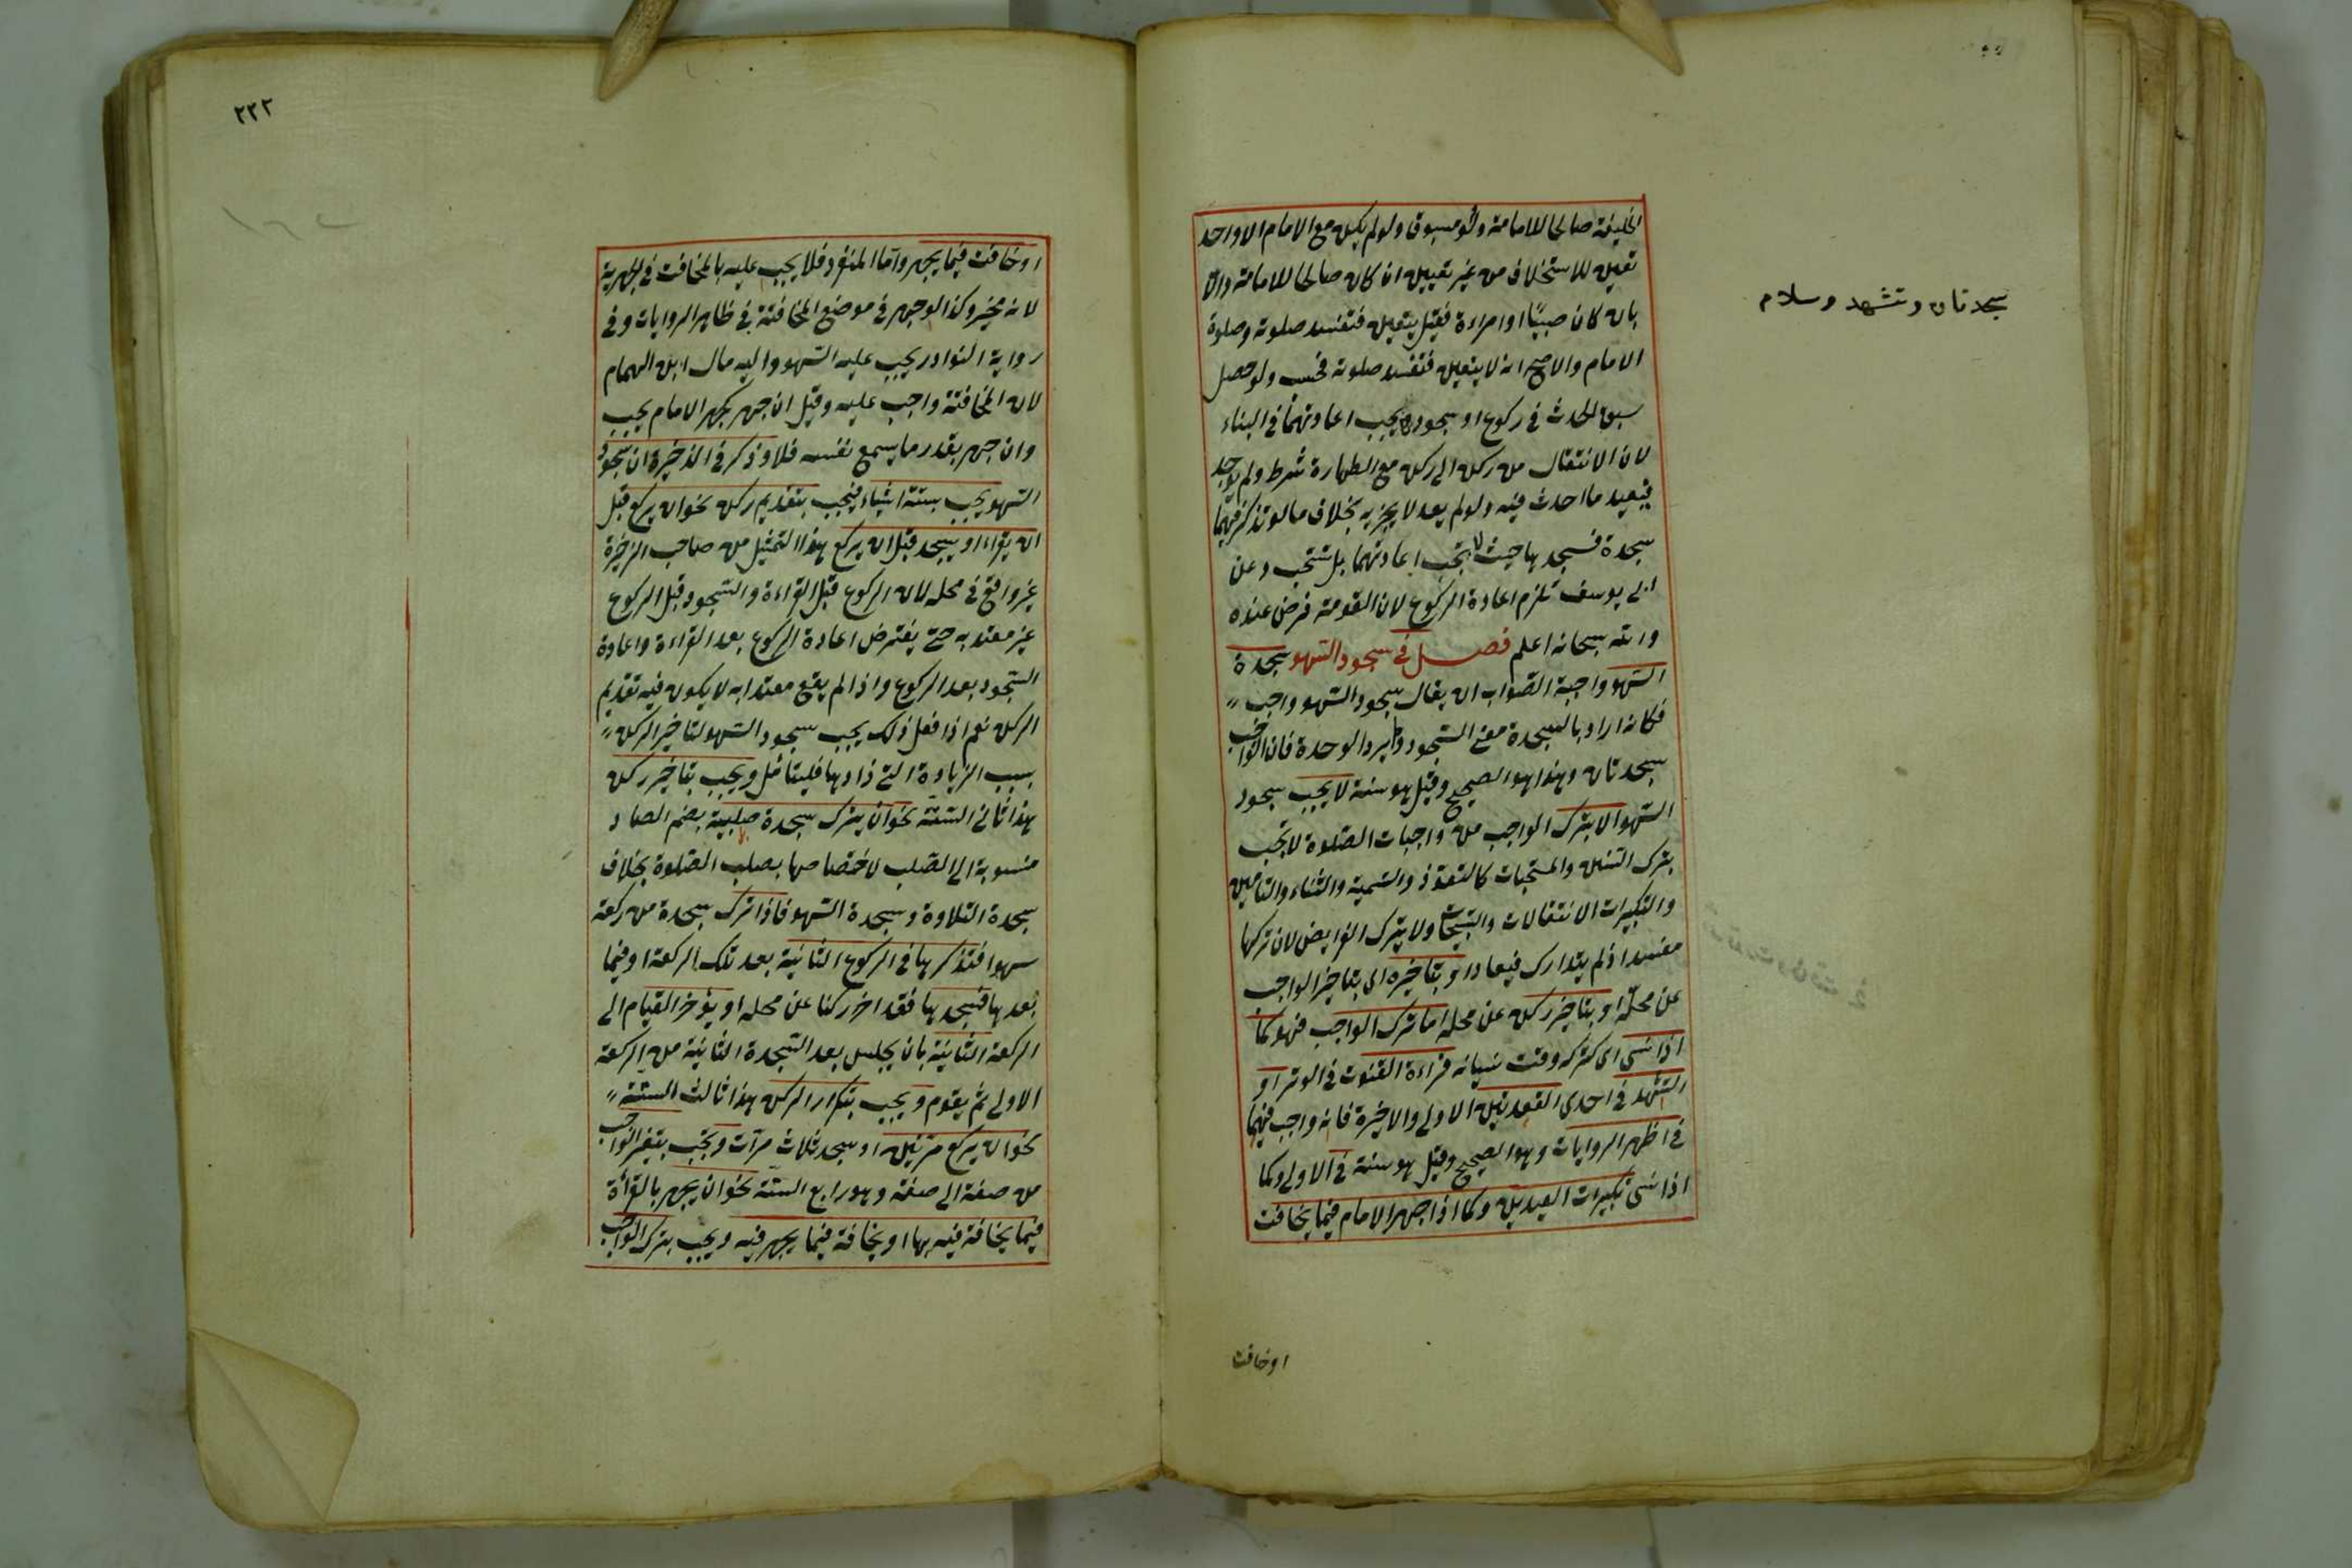 سجدتان وتشهد وسلام
الخليفة صالحا للامامة ولو مسبوقا ولو لم يكن مع الامام الا واحد
تعين للاستخلاف من غير تعيين ان كان صالحا للامامة والا
بان كان صبيًا او امراءة فقيل يتعين فتفسد صلوته وصلوة
الامام والاصح انه لا يتعين فتفسد صلوته فحسب ولو حصل
سبق الحدث في ركوع او سجود يجب اعادتهما في البناء
لان الانتقال من ركن الى ركن مع الطهارة شرط ولم يوجد
فيعيد ما احدث فيه ولو لم يعد لا يجزيه بخلاف ما لو تذكر فيهما
سجدة فسجدها حيث لا تجب اعادتهما بل تستحب وعن
ابى يوسف تلزم اعادة الركوع لان القومة فرض عنده
والله سبحانه اعلم فصل في سجود السهو سجدة
السهو واجبة الصواب ان يقال سجود السهو واجب
فكانه اراد بالسجدة معنى السجود ولم يرد الوحدة فان الواجب
سجدتان وهذا هو الصحيح وقيل هو سنة لا يجب سجود
السهو الا بترك الواجب من واجبات الصلوة لا تجب
بترك السنن والمستحبات كالتعوذ والتسمية والثناء والتامين
والتكبيرات الانتقالات والتسبيحات ولا بترك الفرايض لان تركها
مفسد اذ لم يتدارك فيعاد او بتاخيره اى بتاخير الواجب
عن محله او بتاخير ركن عن محله اما ترك الواجب فهو كما
اذا نسى اى كتركه وقت نسيانه قراءة القنوت في الوتر او
التشهد في احدى القعدتين الاولى والاخيرة فانه واجب فيهما
في اظهر الروايات وهو الصحيح وقيل هو سنة في الاولى وكما
اذا نسى تكبيرات العيدين وكما اذا جهر الامام فيما يخافت
اوخافت
٢٢٢
اوخافت فيما يجهر واما المنفرد فلا يجب عليه بالمخافت في الجهرية
لانه مخير وكذا لو جهر في موضع المخافتة في ظاهر الروايات وفي
رواية النوادر يجب عليه السهو واليه مال ابن الهمام
لان المخافتة واجب عليه وقيل ان جهر كجهر الامام يجب
وان جهر بقدر ما يسمع نفسه فلا وذكر في الذخيرة ان سجود
السهو يجب بستة اشياء فيجب بتقديم ركن نحو ان يركع قبل
ان يقراء او يسجد قبل ان يركع هذا التمثيل من صاحب الذخيرة
غير واقع في محله لان الركوع قبل القراءة والسجود قبل الركوع
غير معتد به حتى يفترض اعادة الركوع بعد القراءة واعادة
السجود بعد الركوع واذا لم يقع معتدا به لا يكون فيه تقديم
الركن نعم اذا فعل ذلك يجب سجود السهو لتاخير الركن
بسبب الزيادة التى زادها فليتامل ويجب بتاخير ركن
هذا ثانى الستة نحو ان يترك سجدة صلبية بضم الصاد
منسوبة الى الصلب لاختصاصها بصلب الصلوة بخلاف
سجدة التلاوة وسجدة السهو فاذا ترك سجدة من ركعة
سهوا فتذكرها في الركوع الثانية بعد تلك الركعة او فيما
بعدها فسجدها فقد اخر ركنا عن محله او يؤخر القيام الى
الركعة الثانية بان يجلس بعد السجدة الثانية من الركعة
الاولى ثم يقوم ويجب بتكرار الركن هذا ثالث الستة
نحو ان يركع مرتين او سجد ثلاث مرآت وتجب بتغير الواجب
من صفة الى صفة وهو رابع الستة نحو ان يجهر بالقرأة
فيما يخافة فيه بها او يخافة فيما يجهر فيه ويجب بترك الواجب